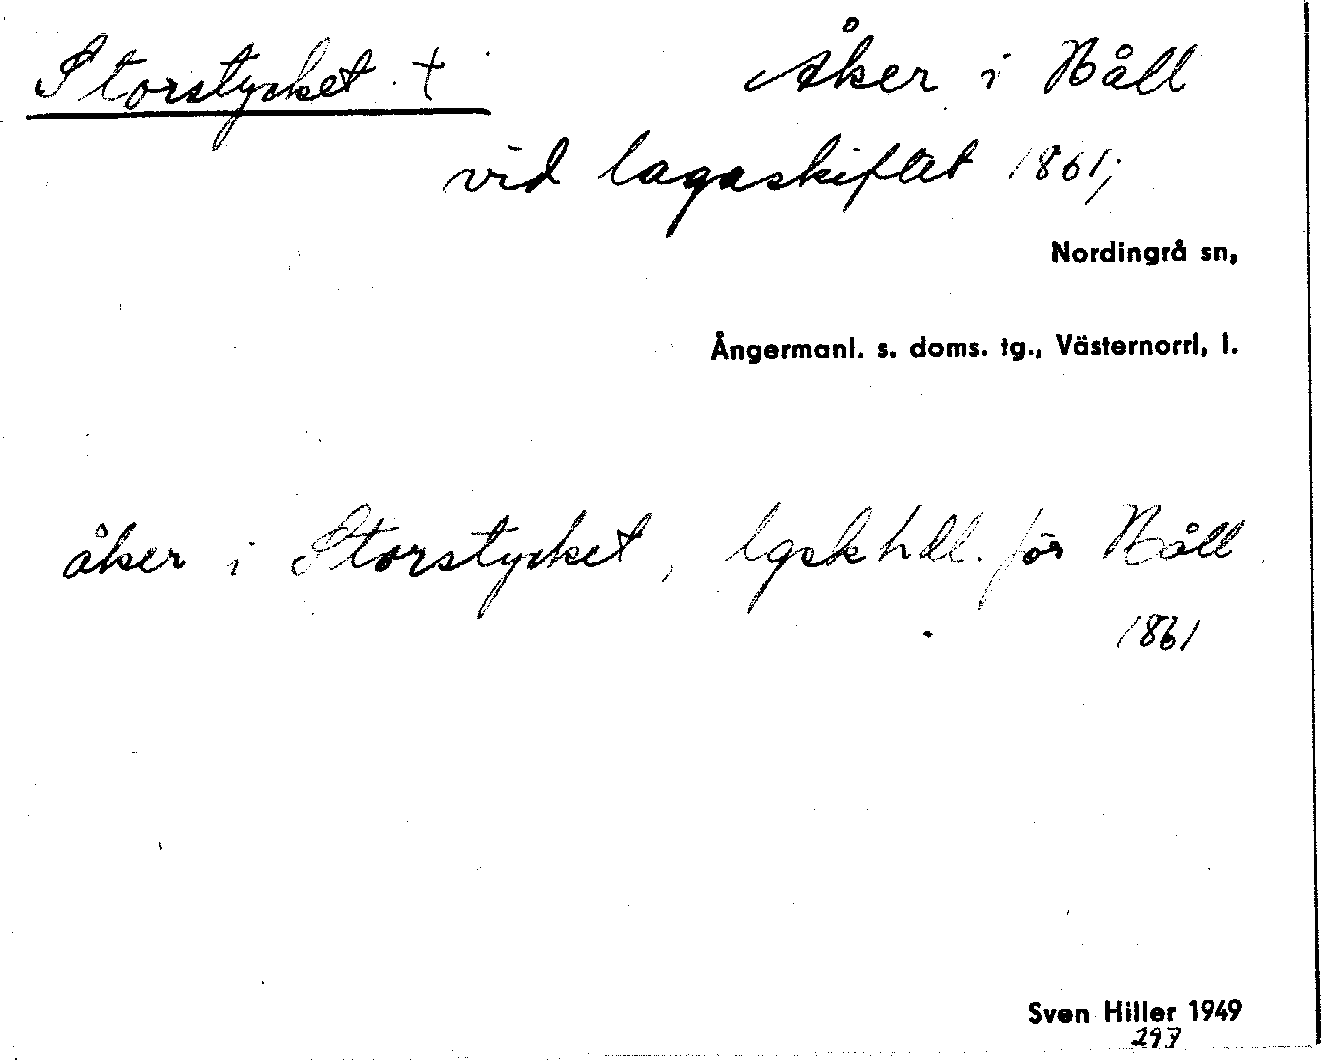 Storstycket + Åker i Håll
vid lagaskiftet 1861;
Nordingrå sn,
Ångermanl. s. doms. tg., Västernorrl, l.
åker i Storstycket, lgskhdl. för Håll
1861
Sven Hiller 1949